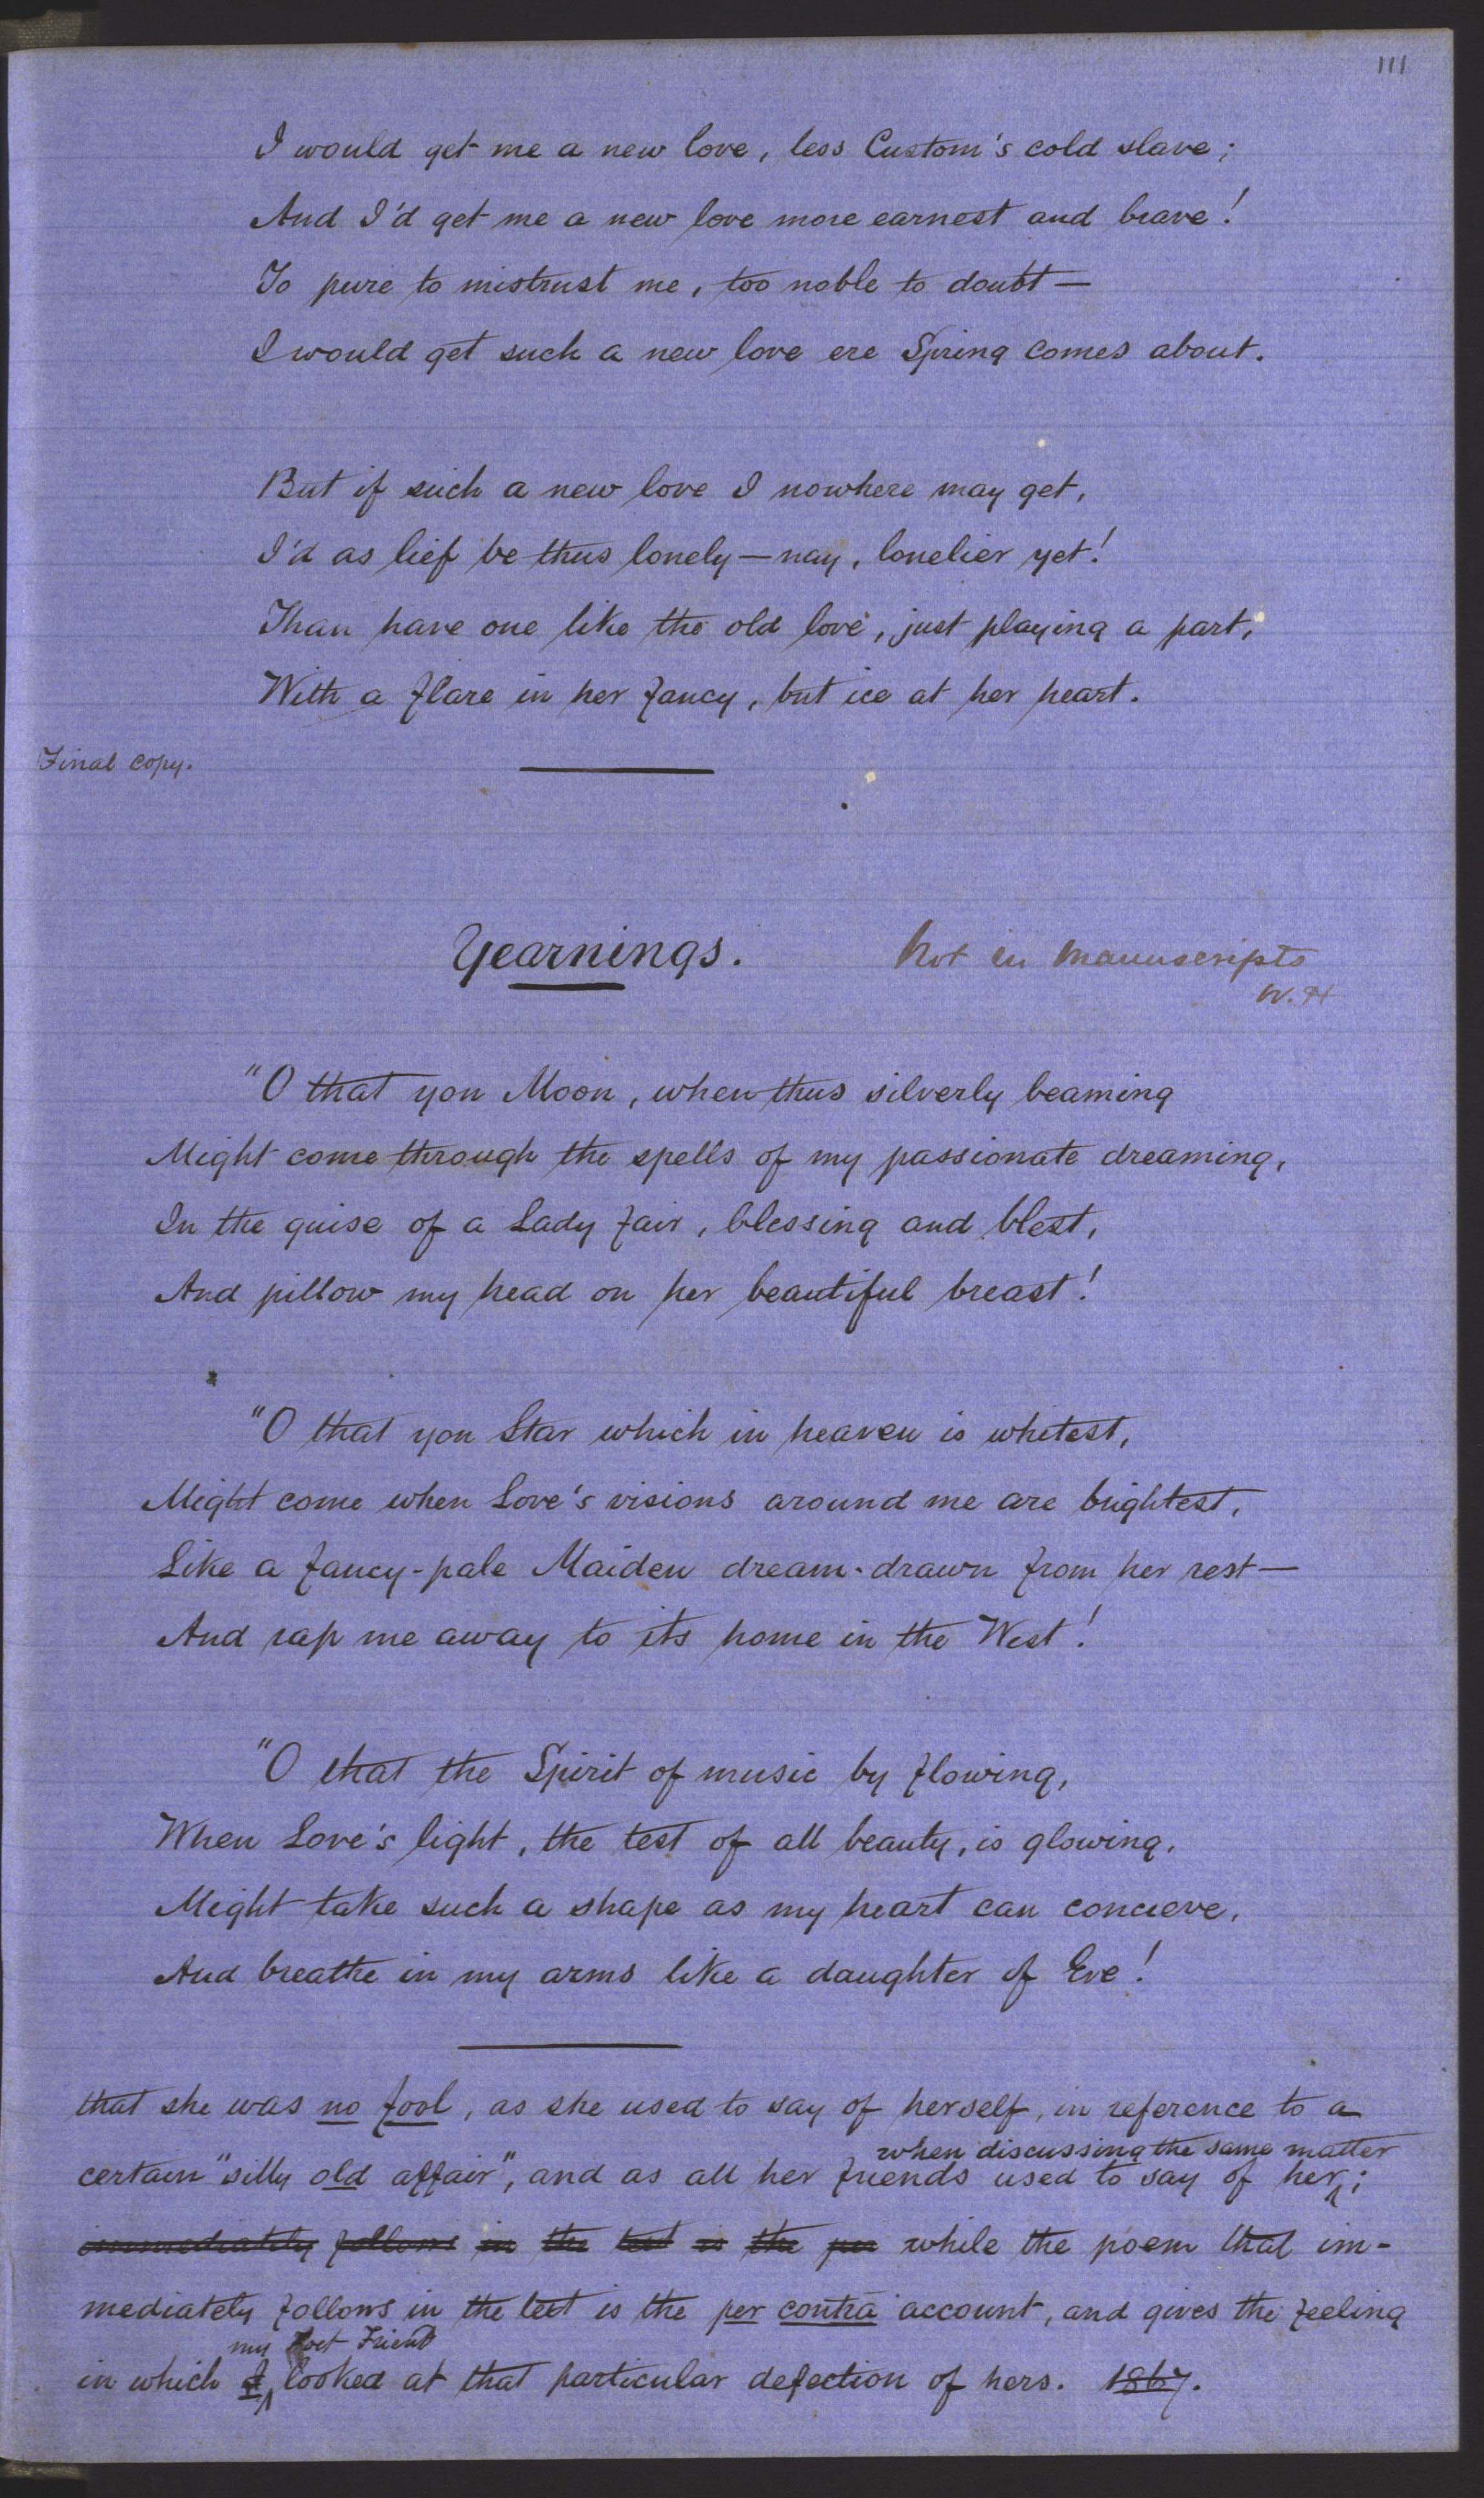 111
I would get me a new love, less Custom's cold slave;
And I'd get me a new love more earnest and brave!
To pure to mistrust me, too noble to doubt—
I would get such a new love ere Spring comes about.
But if such a new love I nowhere may get,
I'd as lief be thus lonely—nay, lonelier yet!
Than have one like the old love, just playing a part,
With a flare in her fancy, but ice at her heart.
Final copy.
Yearnings.
Not in Manuscripts
W. H
"O that yon Moon, when thus silverly beaming
Might come through the spells of my passionate dreaming,
In the guise of a Lady fair, blessing and blest,
And pillow my head on her beautiful breast!
"O that yon Star which in heaven is whitest,
Might come when Love's visions around me are brightest,
Like a fancy-pale Maiden dream-drawn from her rest—
And rap me away to its home in the West!
"O that the Spirit of music by flowing,
When Love's light, the test of all beauty, is glowing,
Might take such a shape as my heart can concieve,
And breathe in my arms like a daughter of Eve!
that she was no fool, as she used to say of herself, in reference to a
when discussing the same matter
certain "silly old affair", and as all her friends used to say of her;
immediately follows in the text is the per while the poem that im-
mediately follows in the text is the per contra account, and gives the feeling
my Poet Friend
in which I looked at that particular defection of hers. 1867.